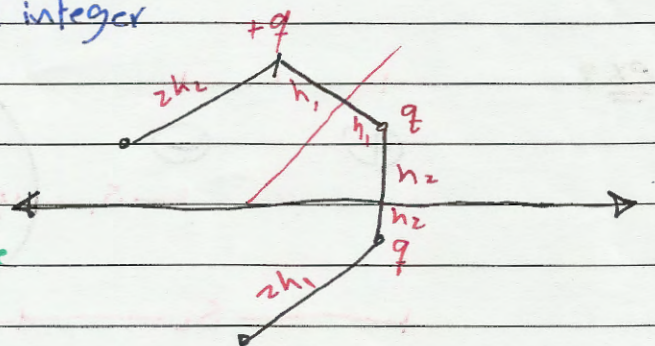 integer
+q
2h₂
h₁
h₁
q
h₂
h₂
q
2h₁